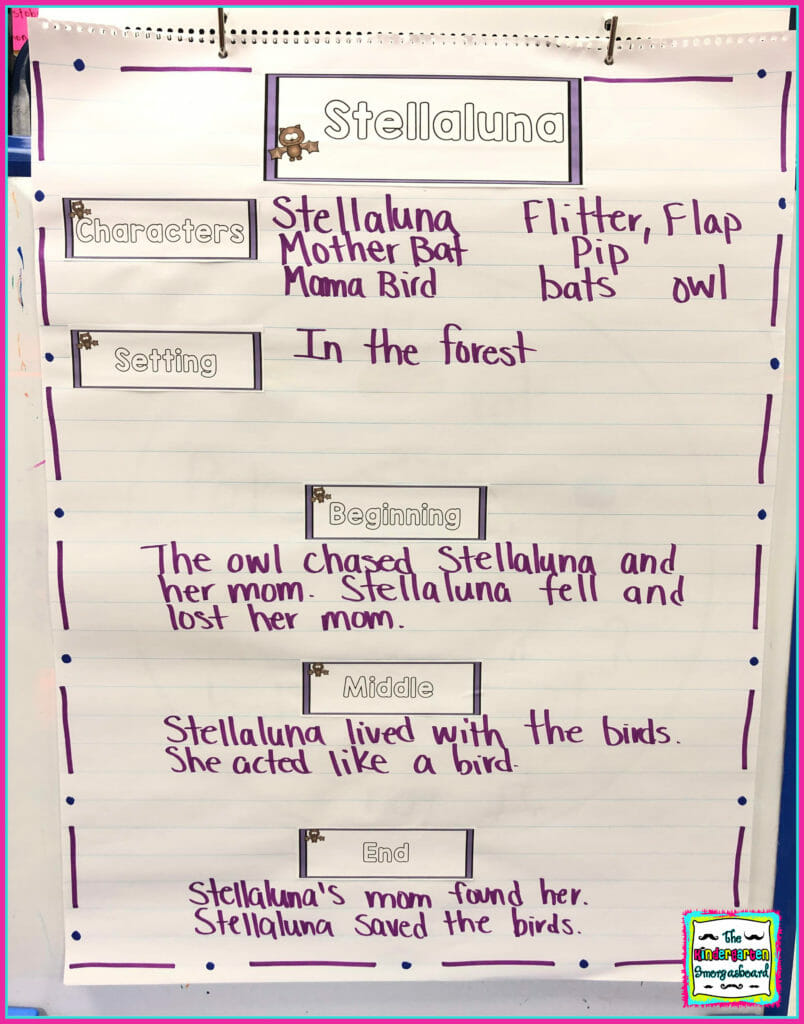 Stellaluna
Characters
Stellaluna Flitter, Flap
Mother Bat Pip
Mama Bird bats owl
Setting
In the forest
Beginning
The owl chased Stellaluna and
her mom. Stellaluna fell and
lost her mom.
Middle
Stellaluna lived with the birds.
She acted like a bird.
End
Stellaluna's mom found her.
Stellaluna saved the birds.
The
Kindergarten
Smorgasboard